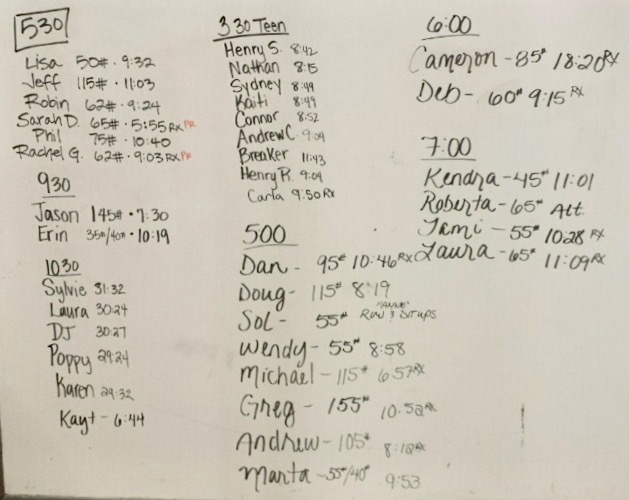 530
Lisa 50# · 9:32
Jeff 115# · 11:03
Robin 62# · 9:24
Sarah D. 65# · 5:55 RX PR
Phil 75# · 10:40
Rachel G. 62# · 9:03 RX PR
930
Jason 145# · 7:30
Erin 35#/40# · 10:19
1030
Sylvie 31:32
Laura 30:24
DJ 30:27
Poppy 29:24
Karen 29:32
Kayt - 6:44
3 30 Teen
Henry S. 8:42
Nathan 8:15
Sydney 8:49
Kaiti 8:49
Connor 8:52
Andrew C. 9:09
Breaker 11:43
Henry R. 9:09
Carla 9:50 RX
500
Dan - 95# 10:46 RX
Doug - 115# 8:19
"ANNIE"
Sol - 55# Row & Situps
Wendy - 55# 8:58
Michael - 115# 6:57 RX
Greg - 155# 10:52 RX
Andrew - 105# 8:18 RX
Marta - 55#/40# 9:53
6:00
Cameron - 85# 18:20 RX
Deb - 60# 9:15 RX
7:00
Kendra - 45# 11:01
Roberta - 65# Alt.
Tami - 55# 10:28 RX
Laura - 65# 11:09 RX